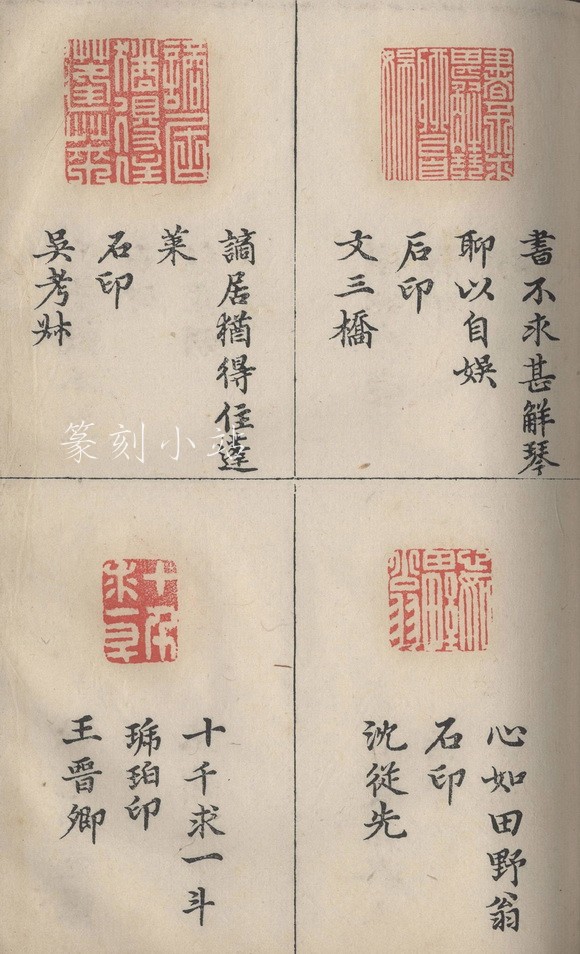 書不求甚解琴
聊以自娛
石印
文三橋
謫居猶得住蓬
莱
石印
心如田野翁
石印
沈從先
十千求一斗
琥珀印
王晋卿
篆刻小站